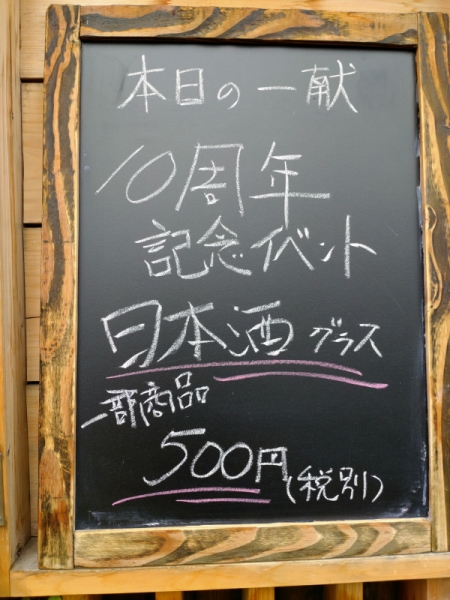 本日の一献
10周年
記念イベント
日本酒グラス
一部商品
500円(税別)